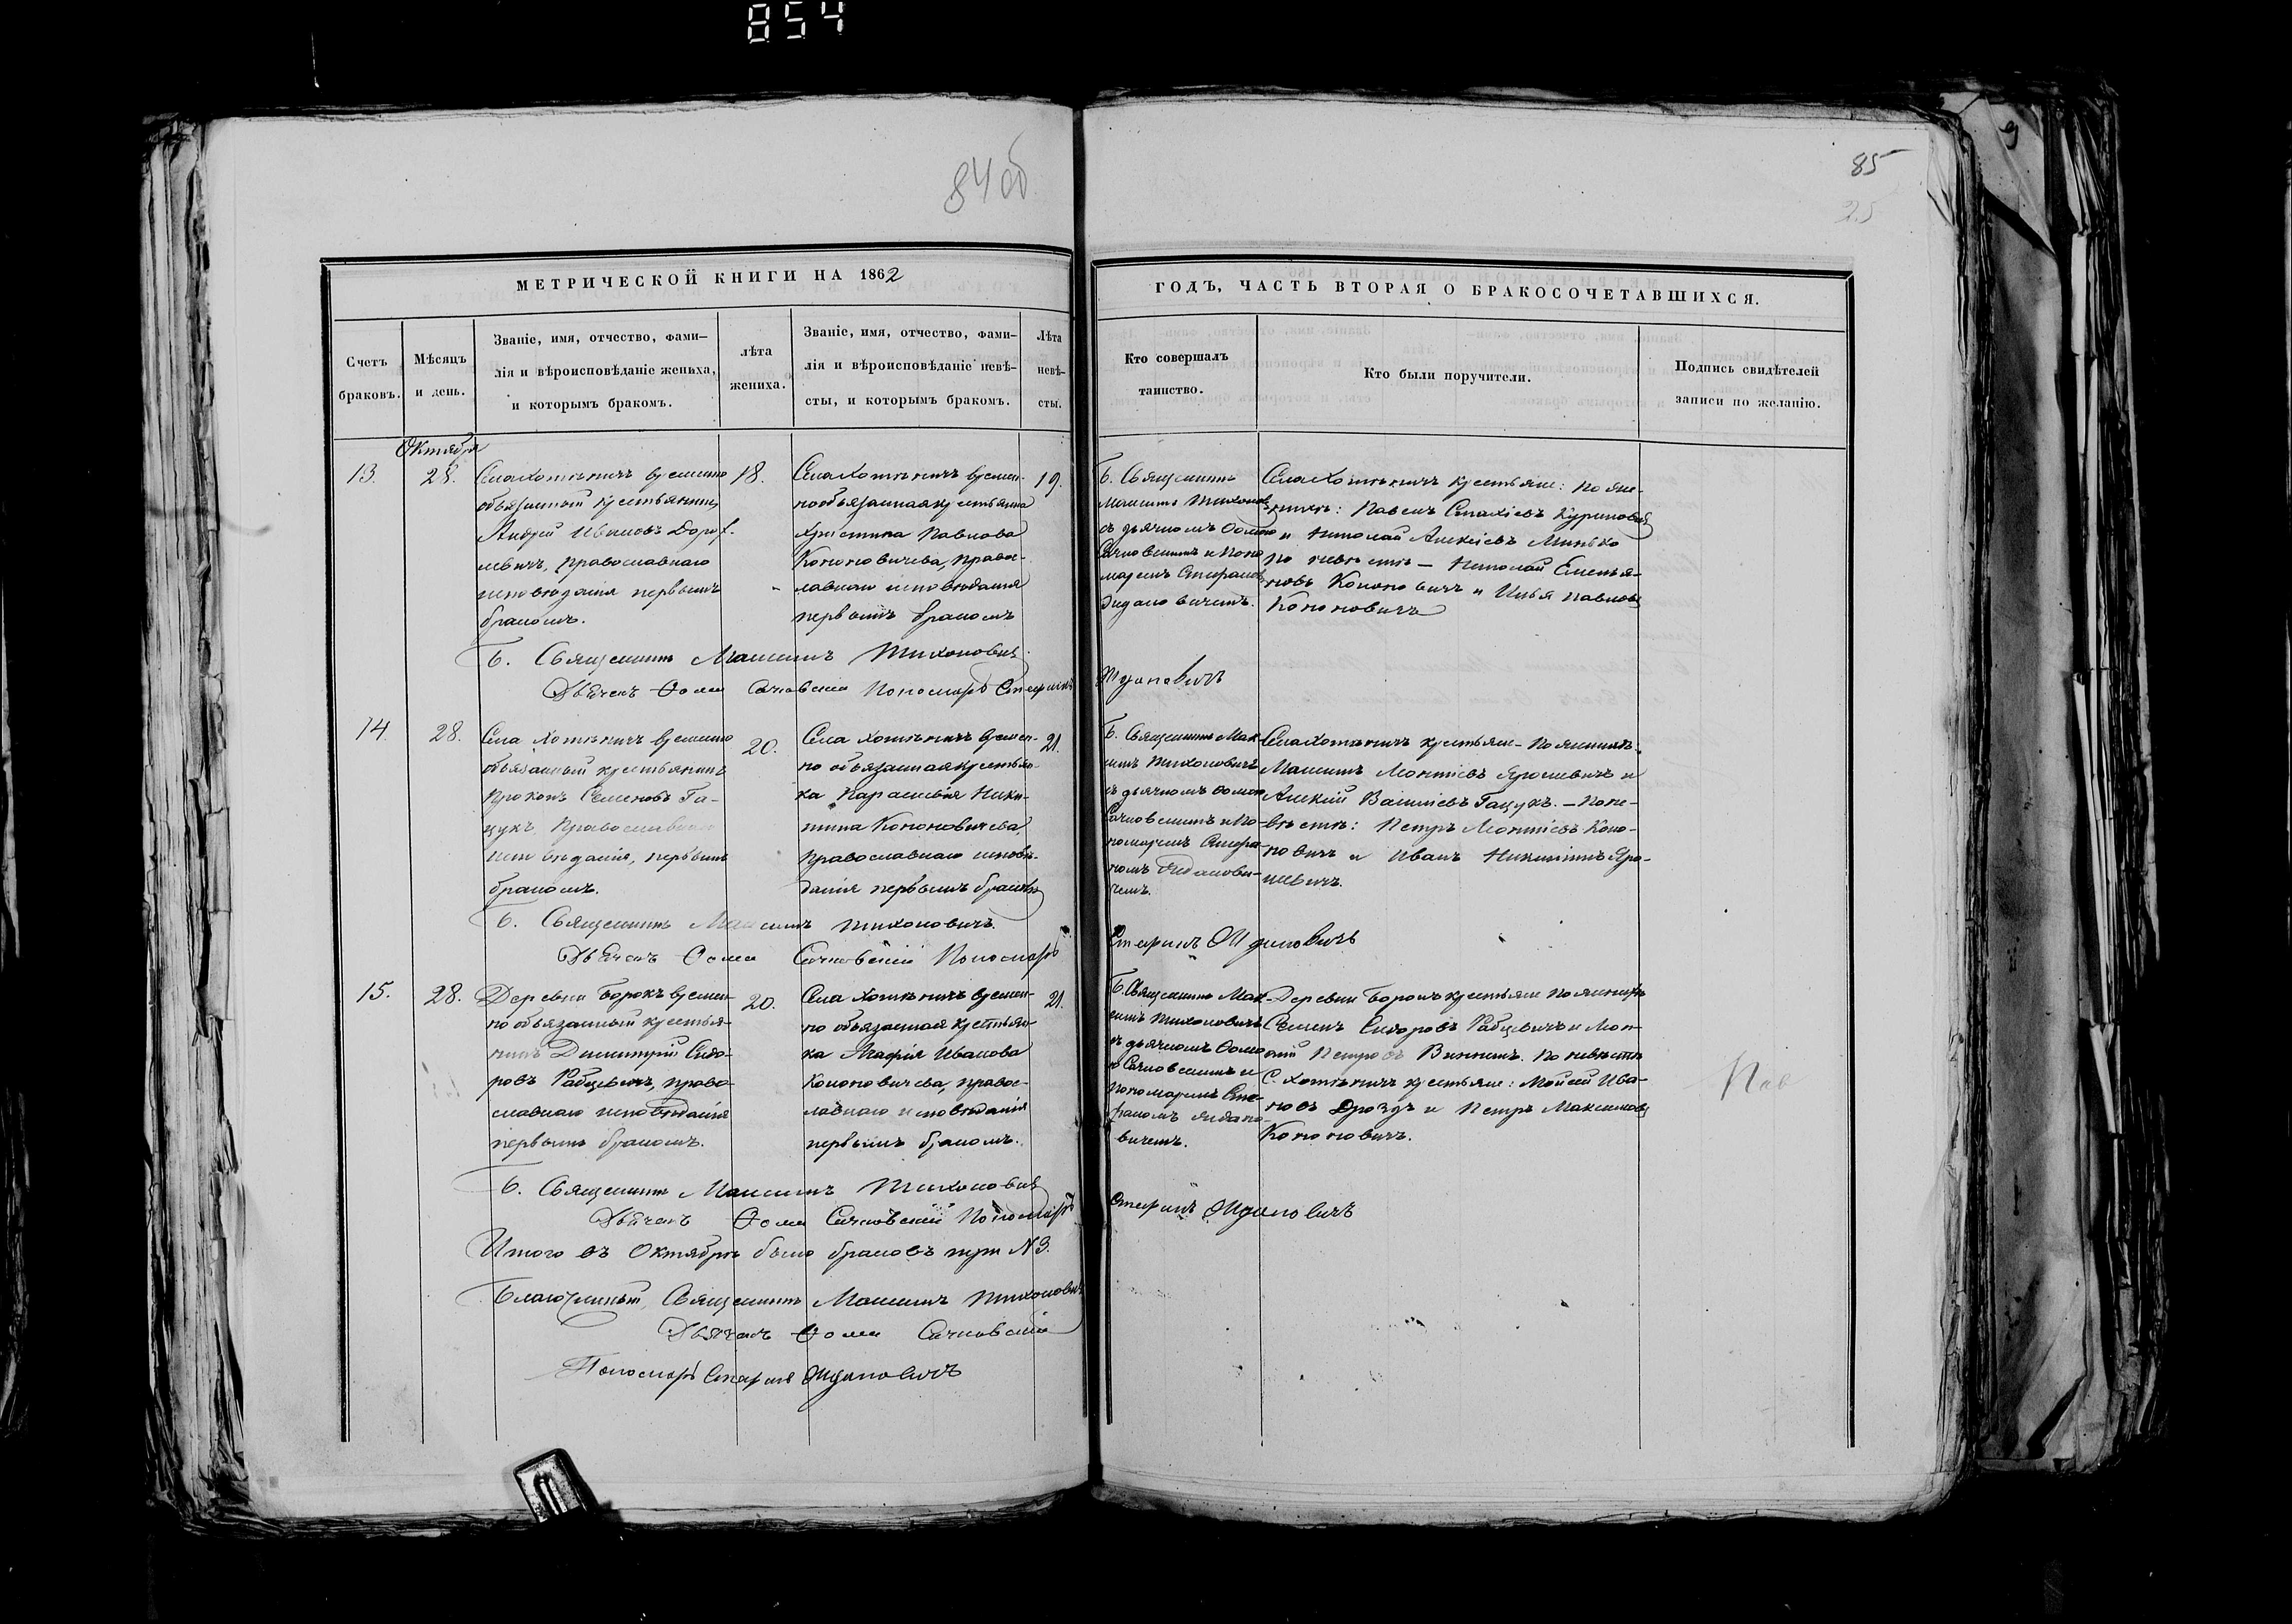 854
84 об
85
25
МЕТРИЧЕСКОЙ КНИГИ НА 1862
ГОДЪ, ЧАСТЬ ВТОРАЯ О БРАКОСОЧЕТАВШИХСЯ.
Счетъ
браковъ.
Мѣсяцъ
и день.
Званіе, имя, отчество, фами-
лія и вѣроисповѣданіе жениха,
и которымъ бракомъ.
лѣта
жениха.
Званіе, имя, отчество, фами-
лія и вѣроисповѣданіе невѣ-
сты, и которымъ бракомъ.
Лѣта
невѣ-
сты.
Кто совершалъ
таинство.
Кто были поручители.
Подпись свидѣтелей
записи по желанію.
Октября
13.
28.
Села Хотѣничъ временно
обязанный крестьянинъ
Андрей Ивановъ
православнаго
исповѣданія первымъ
бракомъ.
18.
Села Хотѣничъ времен-
нообязанная крестьянка
Христина Павлова
Кононовичева, правос-
лавнаго исповѣданія
первымъ бракомъ
19.
Б. Священникъ
Максимъ Тихоновичъ
съ дьячкомъ Ѳомою
Сачковскимъ и Поно
маремъ Стефаномъ
Жидановичемъ.
Села Хотѣничъ крестьяне: по же-
нихѣ: Павелъ Куриловичъ
и Николай Алексѣевъ Минько
по невѣстѣ — Николай Емелья-
новъ Кононовичъ и Илья Павловъ
Кононовичъ
Б. Священникъ Максимъ Тихоновичъ
Дьячекъ Ѳома Сачковскій Пономарь Стефанъ
Ждановичъ
14.
28.
Села Хотѣничъ временно
обязанный крестьянинъ
Прокопъ Семеновъ Га-
цукъ, Православнаго
исповѣданія, первымъ
бракомъ.
20.
Села Хотѣничъ времен-
но обязанная крестьян-
ка Параскевія Ники-
тина Кононовичева,
православнаго исповѣ-
данія первымъ бракомъ
21.
Б. Священникъ Мак-
симъ Тихоновичъ
съ дьячкомъ Ѳомою
Сачковскимъ и По-
номаремъ Стефа-
номъ Жиданови-
чемъ.
Села Хотѣничъ крестьяне — По женихѣ.
Максимъ Леонтіевъ Ярошевичъ и
Алексій Василіевъ Гацукъ. — По не-
вѣстѣ: Петръ Леонтіевъ Коно-
новичъ и Иванъ Никитинъ Яро-
шевичъ.
Б. Священникъ Максимъ Тихоновичъ.
Дьячекъ Ѳома Сачковскій Пономарь
Стефанъ Ждановичъ
15.
28.
Деревни Борокъ времен-
но обязанный крестья-
нинъ Димитрій Сидо-
ровъ Рабцевичъ, право-
славнаго исповѣданія
первымъ бракомъ.
20.
Села Хотѣничъ времен-
но обязанная крестьян-
ка Агафія Иванова
Кононовичева, правос-
лавнаго исповѣданія
первымъ бракомъ.
21.
Б. Священникъ Мак-
симъ Тихоновичъ
съ дьячкомъ Ѳомою
Сачковскимъ и
Пономаремъ Сте-
фаномъ Жидано-
вичемъ.
Деревни Борокъ крестьяне по женихѣ
Семенъ Сидоровъ Рабцевичъ и
Петровъ По невѣстѣ
С. Хотѣничъ крестьяне: Мойсей Ива-
новъ Дроздъ и Петръ Максимовъ
Кононовичъ.
Б. Священникъ Максимъ Тихоновичъ
Дьячекъ Ѳома Сачковскій Пономарь
Стефанъ Ждановичъ
Итого въ Октябрѣ было браковъ три № 3.
Благочинный, Священникъ Максимъ Тихоновичъ
Дьячекъ Ѳома Сачковскій
Пономарь Стефанъ Ждановичъ